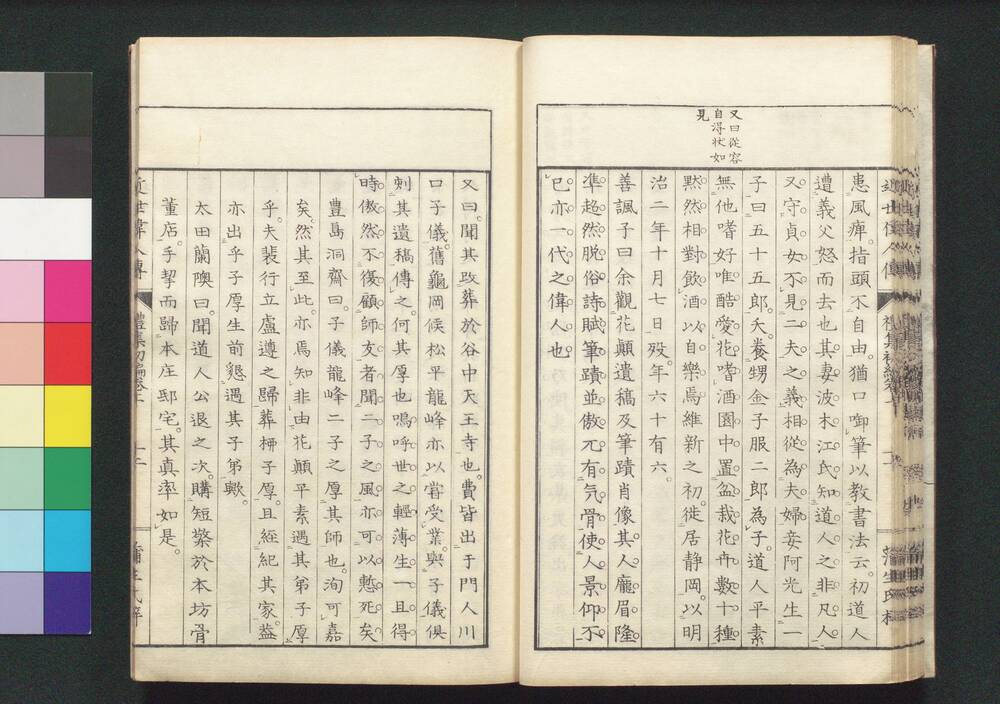 又曰從容
自得狀如
見
患風痺。指頭不自由。猶口啣筆以教書法云。初道人
遭義父怒而去也。其妻波末江氏知道人之非凡人。
又守貞女不見二夫之義。相從為夫婦。妾阿光生一
子曰五十五郎。夭。養甥金子服二郎為子。道人平素
無他嗜好。唯酷愛花嗜酒。園中置盆栽花卉數十種。
黙然相對。飲酒以自樂焉。維新之初。徙居静岡。以明
治二年十月七日歿。年六十有六。
善諷子曰。余觀花顛遺稿及筆蹟肖像。其人龐眉隆
準。超然脱俗。詩賦筆蹟並傲兀有気骨。使人景仰不
已。亦一代之偉人也。
又曰。聞其改葬於谷中天王寺也。費皆出于門人川
口子儀。舊龜岡候松平龍峰亦以嘗受業。與子儀俱
刻其遺稿傳之。何其厚也。嗚呼世之輕薄生。一旦得
時。傲然不復顧師友者。聞二子之風。亦可以慙死矣。
豊島洞齋曰。子儀龍峰二子之厚其師也。洵可嘉
矣。然其至此。亦焉知非由花顛平素遇其弟子厚
乎。夫裴行立盧遵之歸葬栁子厚。且経紀其家。蓋
亦出乎子厚生前懇遇其子弟歟。
太田蘭陬曰。聞道人公退之次。購短檠於本坊骨
董店。手挈而歸本庄邸宅。其真率如是。